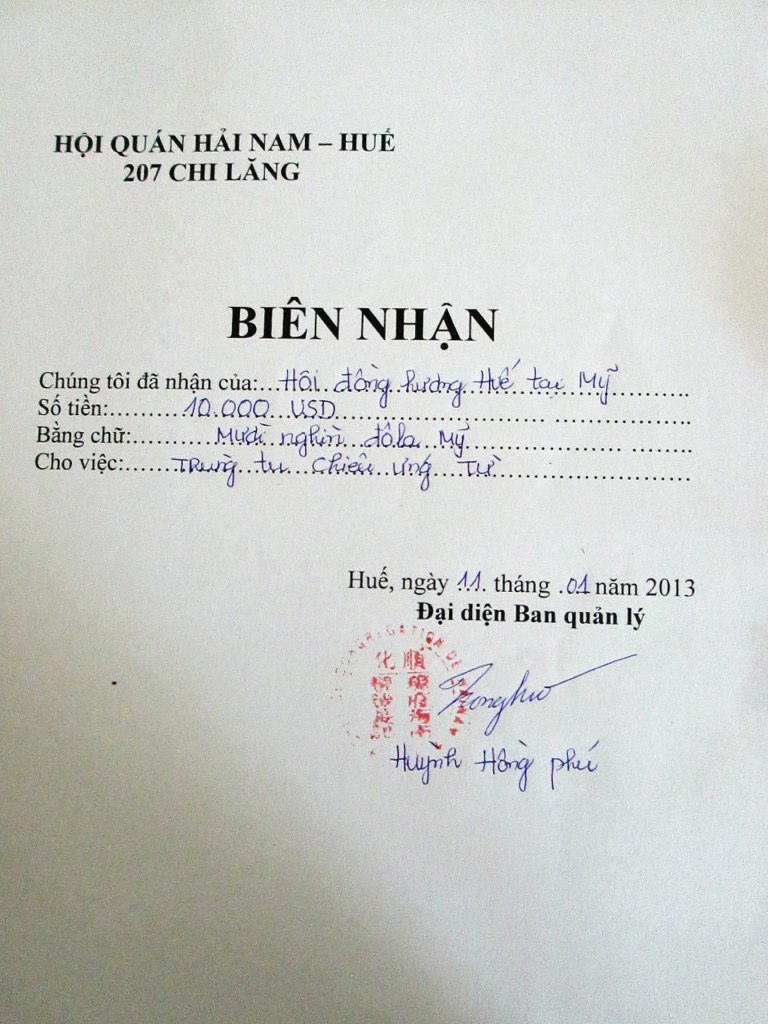 HỘI QUÁN HẢI NAM – HUẾ
207 CHI LĂNG
BIÊN NHẬN
Chúng tôi đã nhận của:...Hội đồng hương Huế tại Mỹ............
Số tiền:...........10.000 USD.................................. ......................
Bằng chữ:.............Mười nghìn đôla Mỹ....................... ..........
Cho việc:........Trùng tu Chiêu Ứng Từ.................................
Huế, ngày 11 tháng .01 năm 2013
Đại diện Ban quản lý
CONGREGATION DE
化順
Huỳnh Hồng phú